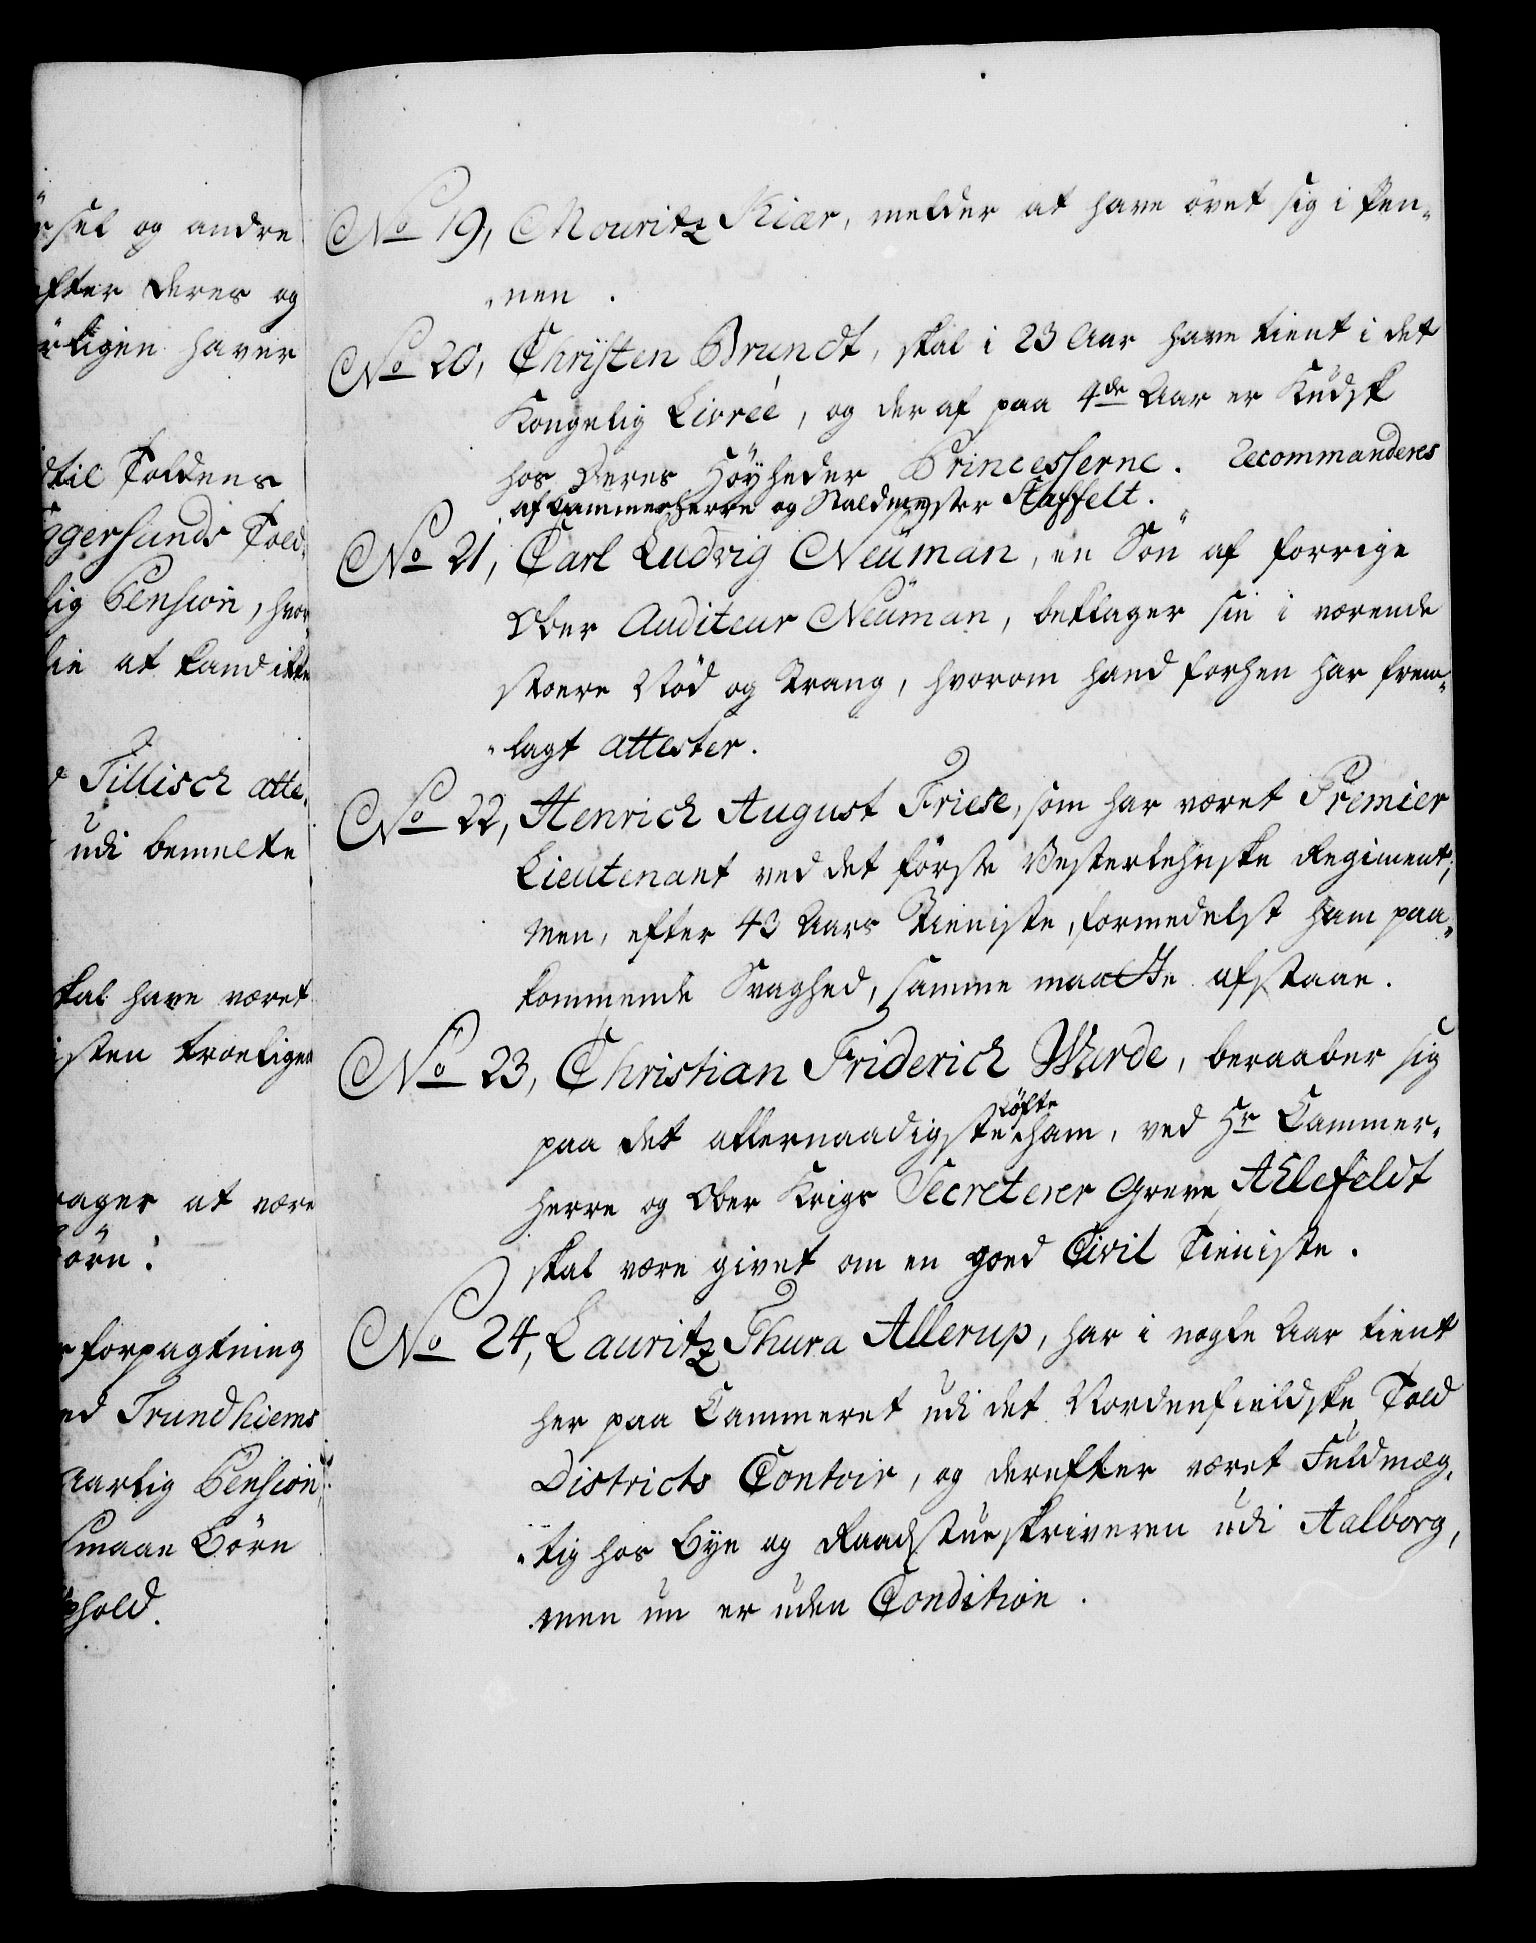 sel og andre
efter deres og
rligen haver
dtil Toldens
ggersunds Told
lig Pension, hvor
at kand ikke
Tillisch atte-
udi bemelte
skal have været
isten troeligen
rager at være
Börn.
forpagtning
ed Trundhiems
Aarlig Pension,
smaae Börn
hold.
No 19, Mouritz Kiær, melder at have övet sig i Pen-
nen.
No 20, Christen Brundt, skal i 23 Aar have tient i det
Kongelig Livreé, og deraf paa 4de Aar er Kudsk
hos Deres Höyheder Princesserne. Recommanderes
af Cammerherre og Staldmester Staffelt.
No 21, Carl Ludvig Neuman, en Sön af forrige
Ober Auditeur Neuman, beklager sin i værende
stoere Nöd og Trang, hvorom hand forhen har frem-
lagt attester.
No 22, Henrich August Friese, som har været Premier
Lieutenant ved det förste Vesterlehnske Regiment,
men, efter 43 Aars Tieniste, formedelst ham paa-
kommende Svaghed, samme maatte afstaae.
No 23, Christian Friderich Wurde, beraaber sig
paa det allernaadigste Löfte ham, ved Hr Cammer-
herre og Ober Krigs Secreterer Greve Ahlefeldt
skal være givet om en goed Civil Tieniste.
No 24, Lauritz Thura Allerup, har i nogle Aar tient
her paa Cammeret udi det Nordenfieldske Told
Districts Contoir, og derefter været Fuldmæg-
tig hos Bye og Raadstueskriveren udi Aalborg,
men nu er uden Condition.